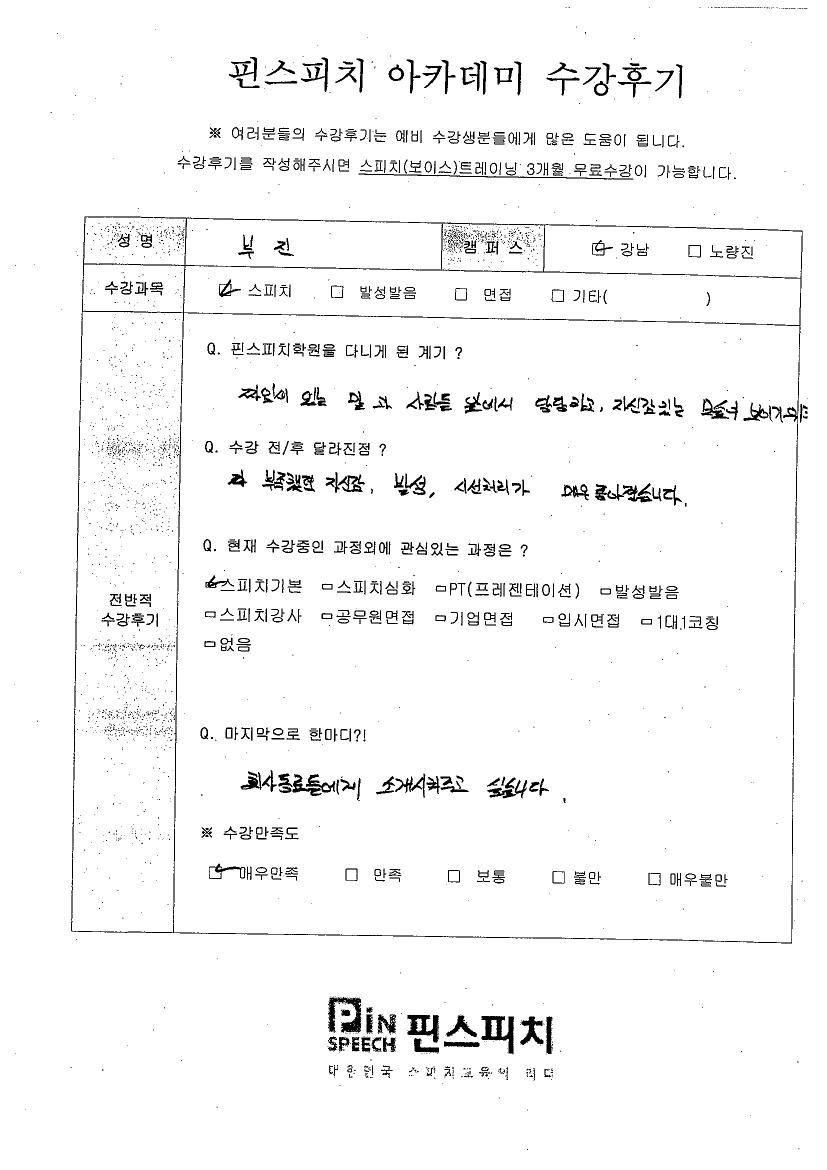 핀스피치 아카데미 수강후기
※ 여러분들의 수강후기는 예비 수강생분들에게 많은 도움이 됩니다.
수강후기를 작성해주시면 스피치(보이스)트레이닝 3개월 무료수강이 가능합니다.
성 명 부 진 캠 퍼 스 강남 노량진
수강과목 스피치 발성발음 면접 기타( )
Q. 핀스피치학원을 다니게 된 계기 ?
사람들 앞에서 당당하고, 자신감있는
Q. 수강 전/후 달라진점 ?
부족했던 자신감, 발성, 시선처리가 매우 좋아졌습니다.
Q. 현재 수강중인 과정외에 관심있는 과정은 ?
스피치기본 스피치심화 PT(프레젠테이션) 발성발음
전반적
수강후기
스피치강사 공무원면접 기업면접 입시면접 1대1코칭
없음
Q. 마지막으로 한마디?!
회사동료들에게 소개시켜주고 싶습니다.
※ 수강만족도
매우만족 만족 보통 불만 매우불만
PiN
SPEECH 핀스피치
대한민국 스피치교육의 리더